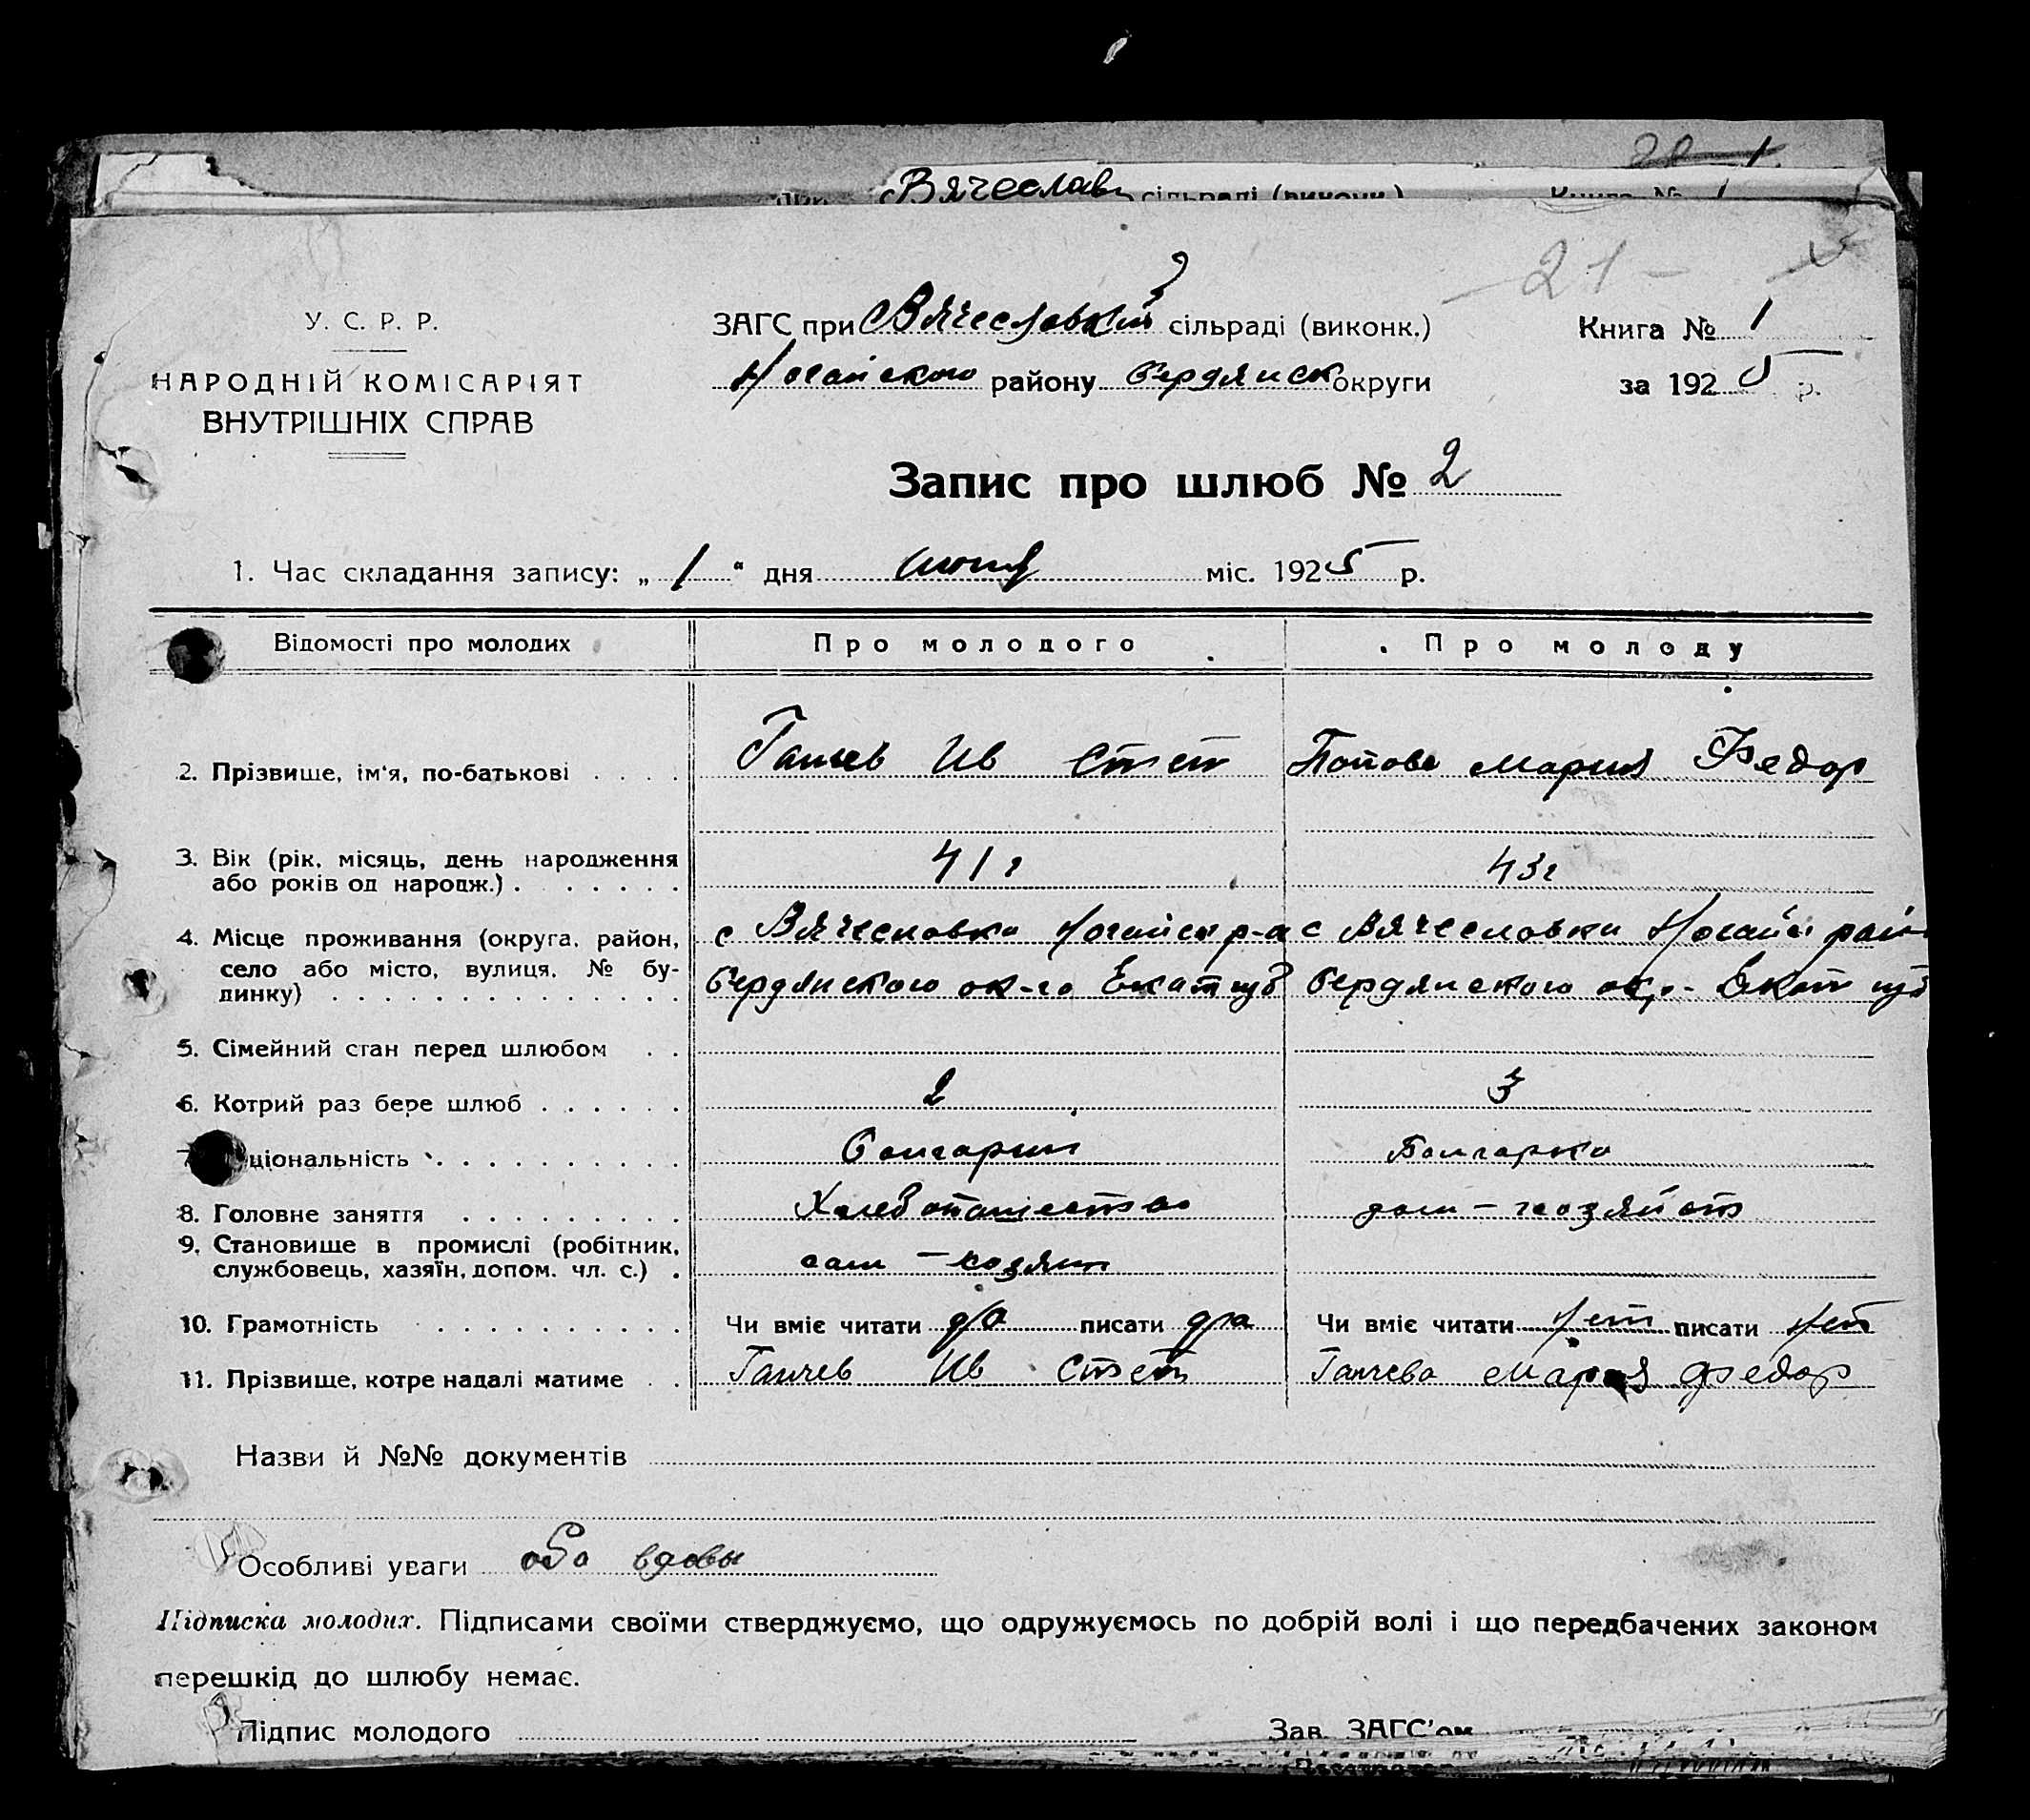 Вячеслав сільраді (виконк.) Книга № 1
21 -
У. С. Р. Р.
НАРОДНІЙ КОМІСАРІЯТ
ВНУТРІШНІХ СПРАВ
ЗАГС при Вячеславкий сільраді (виконк.)
Ногайского району Бердянск округи
Книга № 1
за 1925 р.
Запис про шлюб № 2
1. Час складання запису: „ 1 “ дня міс. 1925 р.
Відомості про молодих Про молодого Про молоду
2. Прізвище, ім'я, по-батькові . . . . Ганчев Ив Степ Попова Мария Федор
3. Вік (рік, місяць, день народження 41 г 43 г
або років од народж.) . . . . . .
4. Місце проживання (округа, район, с Вячесловка Ногайск р-а с Вячесловка Ногайс рай
село або місто, вулиця, № бу-
динку) . . . . . . . . . . . . . . Бердянского ок-го Екат губ Бердянского окр- Екат губ
5. Сімейний стан перед шлюбом . .
6. Котрий раз бере шлюб . . . . . . 2 3
ціональність . . . . . . . . . . Болгарин Болгарка
8. Головне заняття . . . . . . . . Хлебопашество дом - хозяйст
9. Становище в промислі (робітник, сам - хозяин
службовець, хазяїн, допом. чл. с.) .
10. Грамотність . . . . . . . . . . Чи вміє читати да писати да Чи вміє читати Нет писати Нет
11. Прізвище, котре надалі матиме . . Ганчев Ив Степ Ганчева Мария Федор
Назви й №№ документів
Особливі уваги оба вдовы
Підписка молодих. Підписами своїми стверджуємо, що одружуємось по добрій волі і що передбачених законом
перешкід до шлюбу немає.
Підпис молодого Зав. ЗАГС'ом